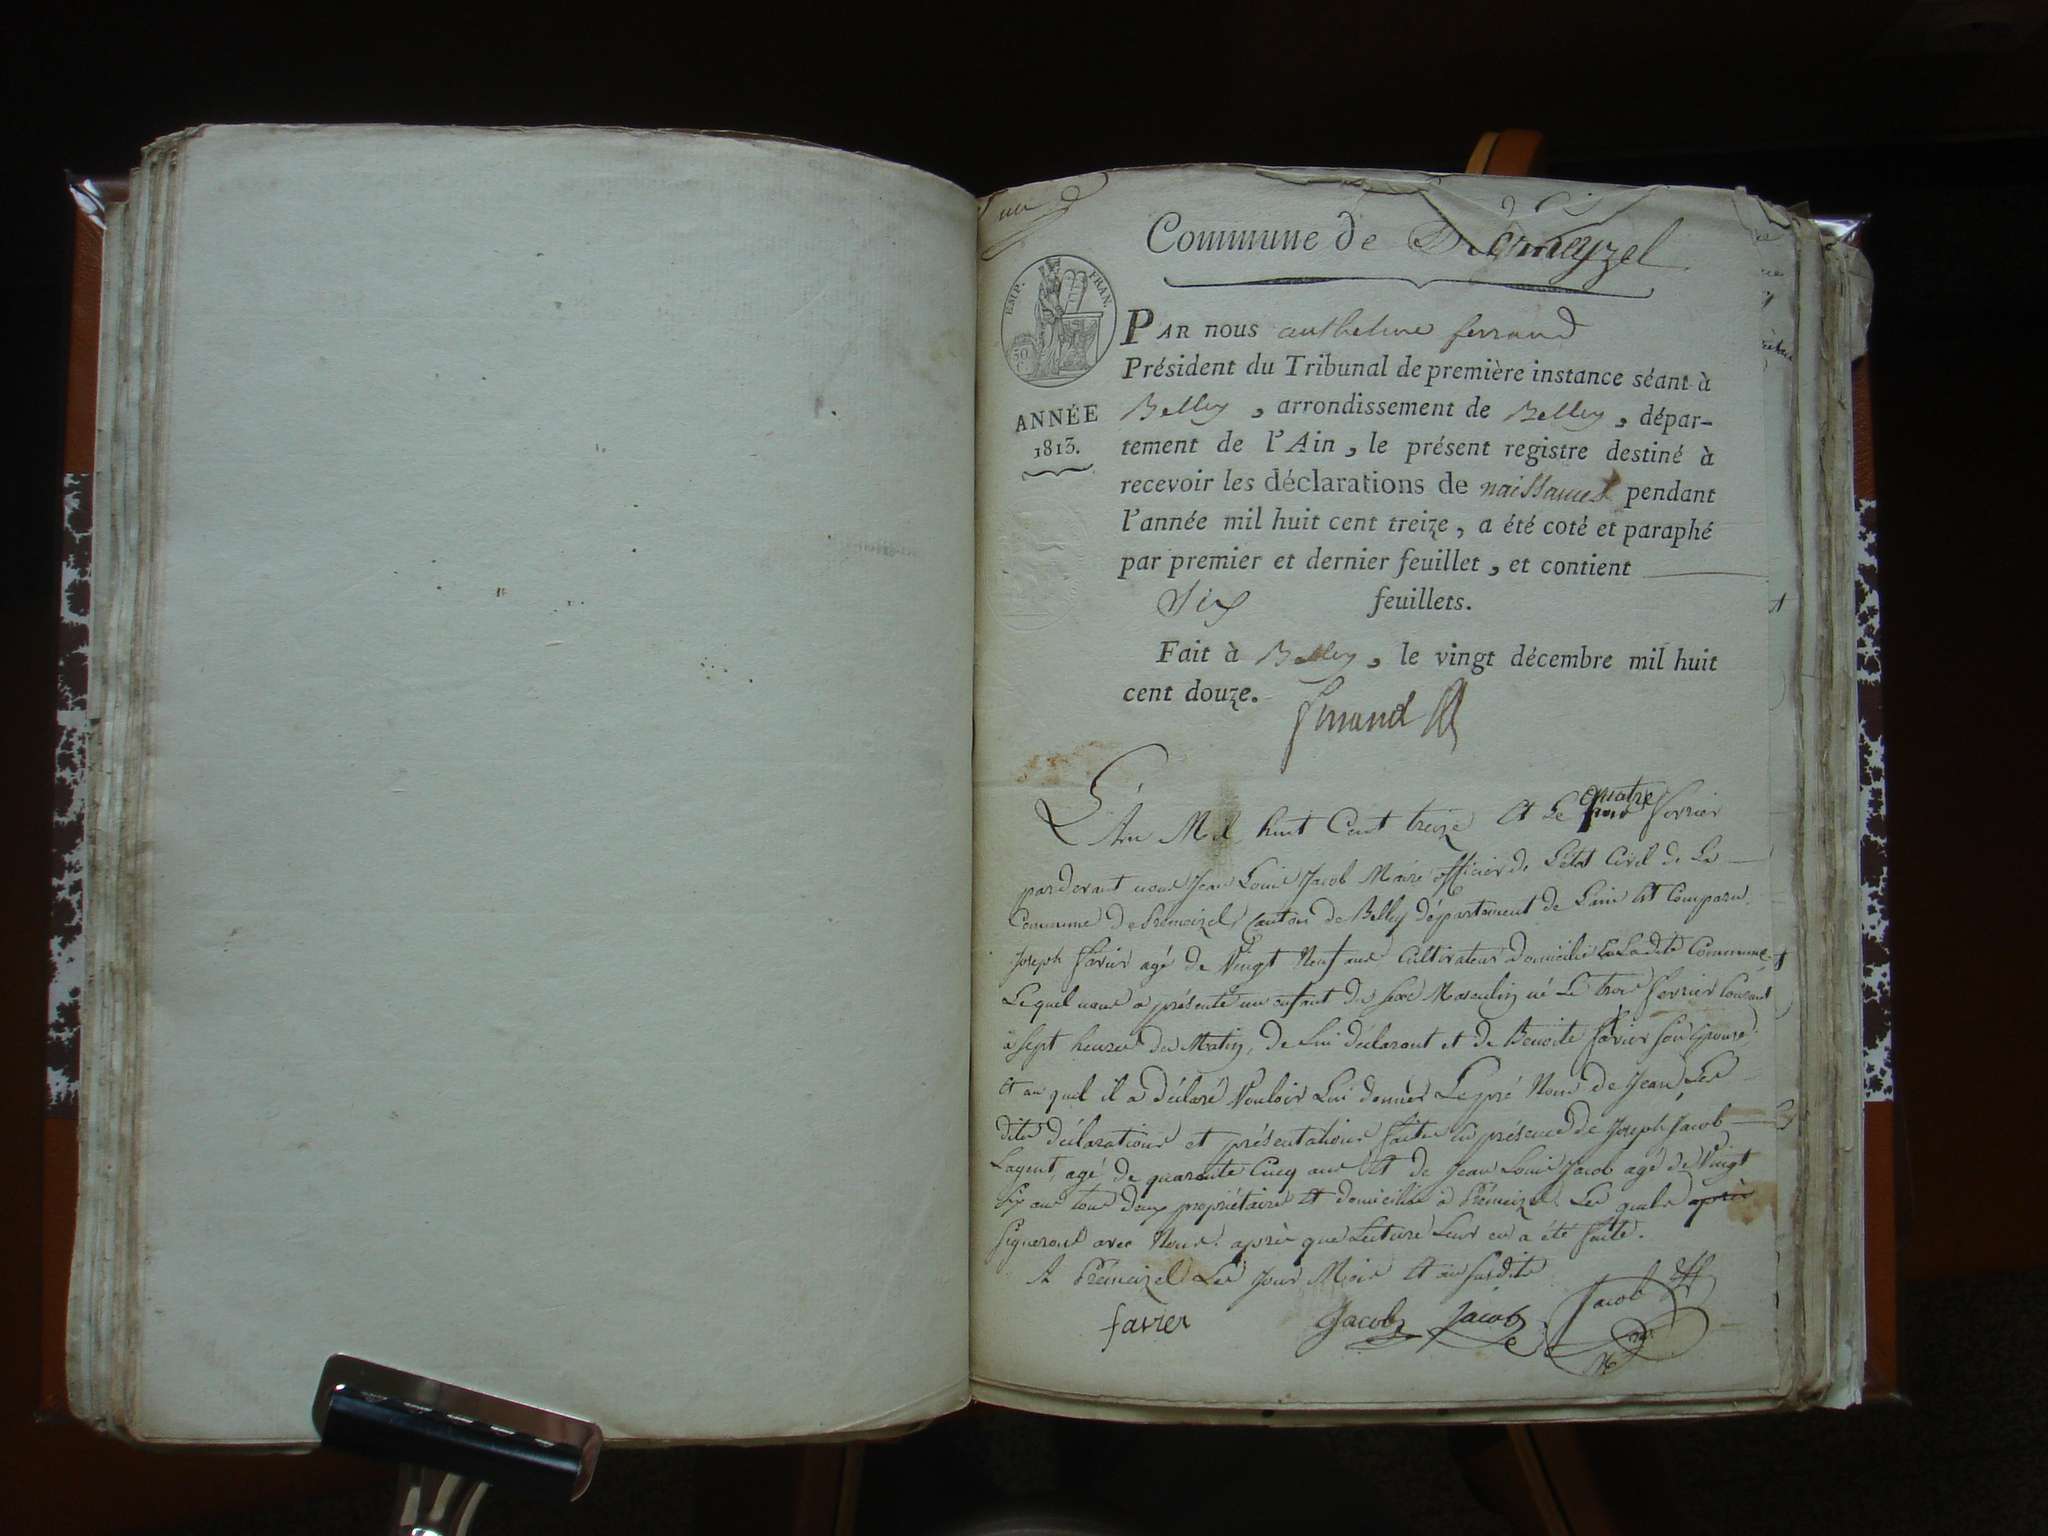 Commune de Prémeyzel
EMP. FRAN.
50
ANNÉE
1813.
PAR nous anthelme ferrand
Président du Tribunal de première instance séant à
Belley, arrondissement de Belley, dépar-
tement de l'Ain, le présent registre destiné à
recevoir les déclarations de naissances pendant
l'année mil huit cent treize, a été coté et paraphé
par premier et dernier feuillet, et contient
Six feuillets.
Fait à Belley, le vingt décembre mil huit
cent douze.
ferrand
L'An Mil huit Cent treize Et Le quatre fevrier
pardevant nous Jean Louis Jacob Maire officier de L'état Civil de La
Commune de Prémeizel, Canton de Belley département de Lain Est Comparu
Joseph favier agé de Vingt Neuf ans Cultivateur domicilié en La dite Commune
Lequel nous a présenté un enfant du sexe Masculin né Le trois fevrier Courant
à sept heures du Matin, de Lui déclarant et de Benoite favier son épouse
Et au quel il a déclaré Vouloir Lui donner Le pré Nom de Jean, Les
dites déclarations et présentations faites en présence de Joseph Jacob
Lagent, agé de quarante Cinq ans Et de Jean Louis Jacob agé de Vingt
Six ans tous deux propriétaires Et domiciliés à Prémeizel Les quels après
signeront avec Nous. après que Lecture Leur en a été faite.
A Prémeizel Les Jour Mois Et an susdits
favier Jacob Jacob Jacob